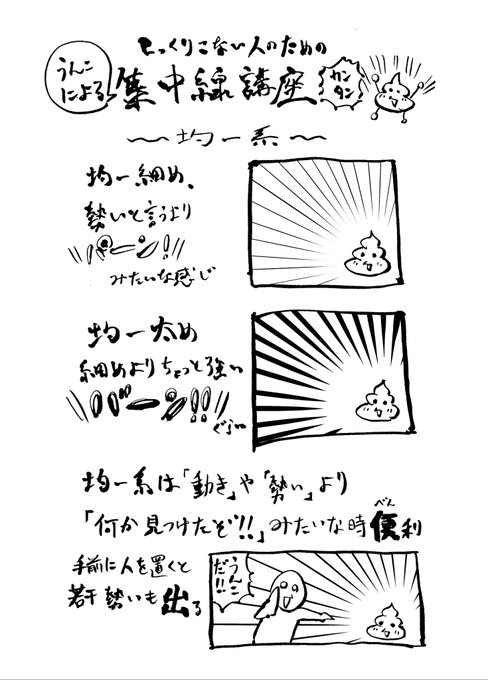 しっくりこない人のための
うんこ
による
集中線講座
カン
タン
〜均一系〜
均一細め、
勢いと言うより
パーン!
みたいな感じ
均一太め
細めよりちょっと強い
バーン!!
ぐらい
均一系は「動き」や「勢い」より
「何か見つけたぞ!!」みたいな時便利
べん
手前に人を置くと
若干勢いも出る
うんこ
だ!!